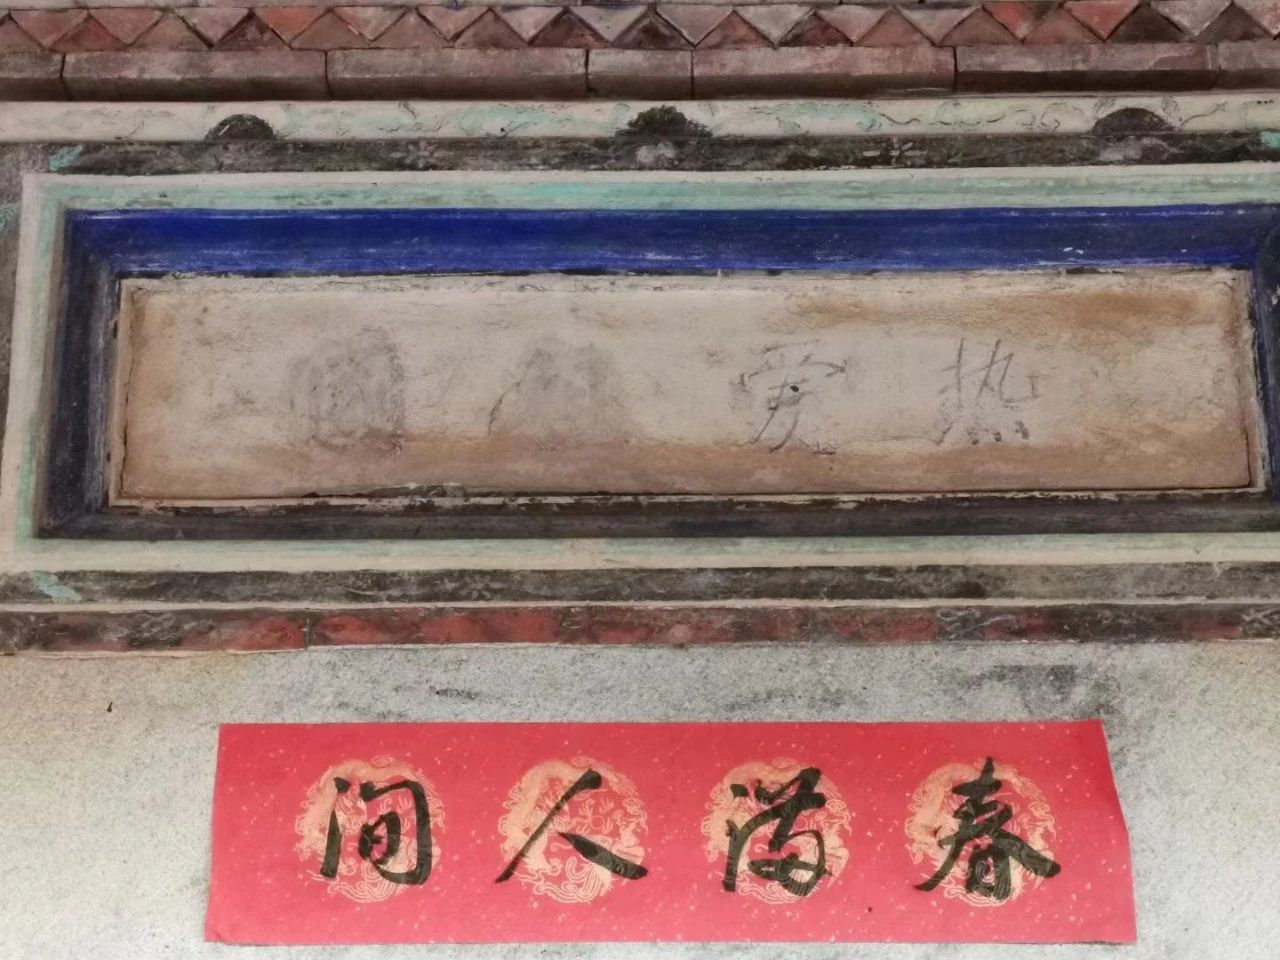 热爱
春满人间